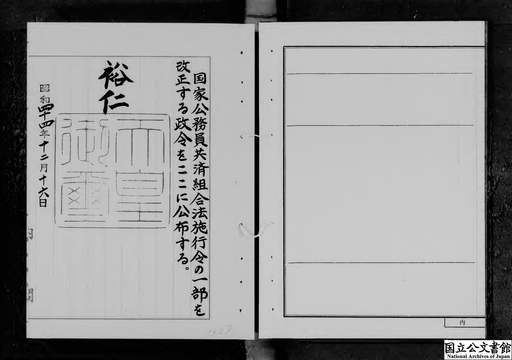 国家公務員共済組合法施行令の一部を
改正する政令をここに公布する。
裕仁
天皇
御璽
昭和四十四年十二月十六日
内
国立公文書館
National Archives of Japan